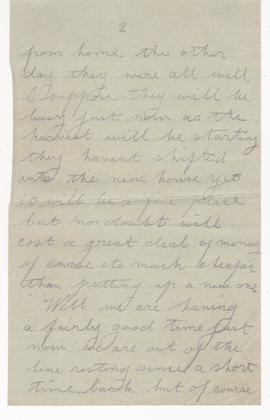 2
from home the other
day they were all well
I suppose they will be
busy just now as the
harvest will be starting
they havent shifted
into the new house yet
it will be a fine place
but no doubt will
cost a great deal of money
of course its much cheaper
than putting up a new one
Well we are having
a fairly good time just
now we are out of the
line resting since a short
time back but of course